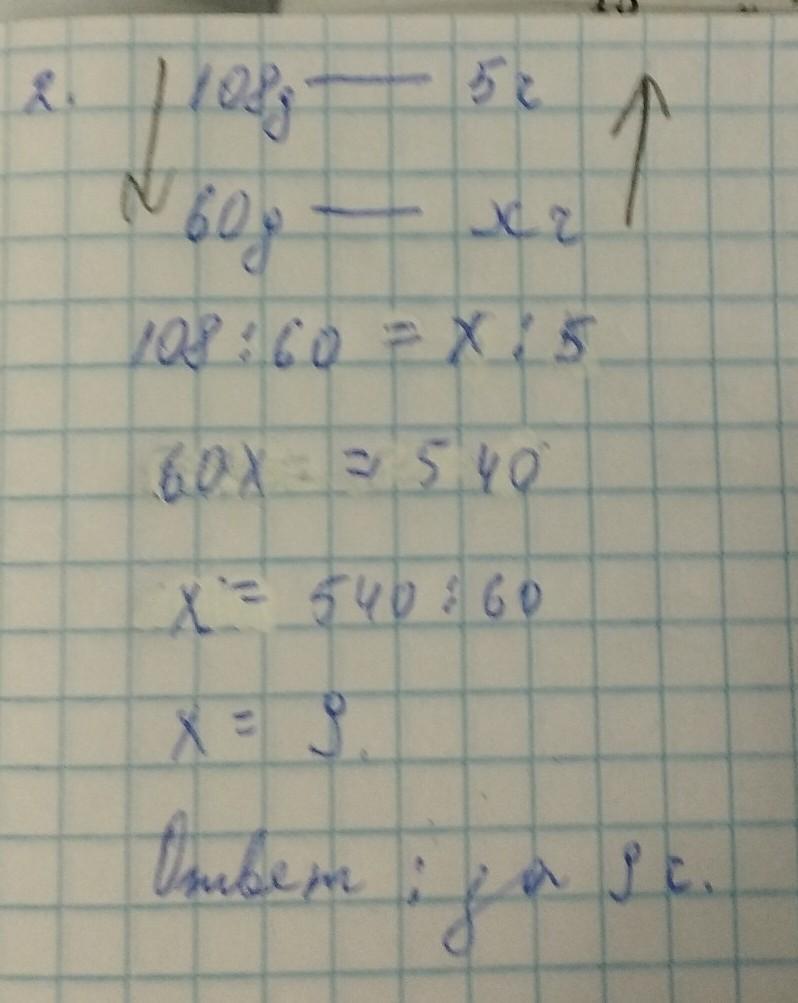 2. 108д — 5ч
60д — xч
108 : 60 = x : 5
60x = 540
x = 540 : 60
x = 9.
Ответ : за 9 ч.